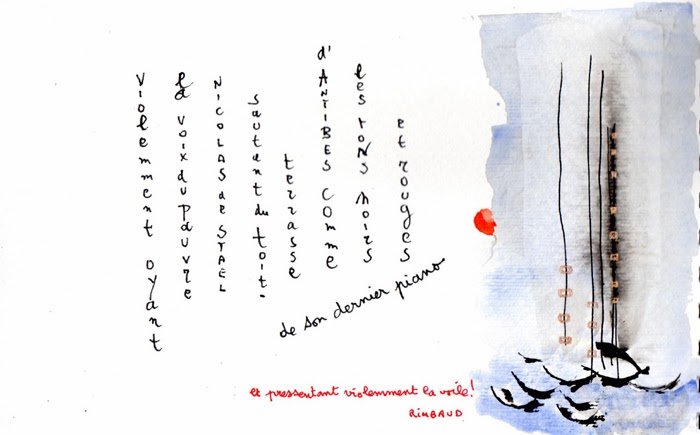 violemment oyant
la voix du pauvre
NICOLAS de STAËL
sautent du toit-
terrasse
d'ANTIBES comme
les sons noirs
et rouges
de son dernier piano
et pressentant violemment la voile!
RIMBAUD